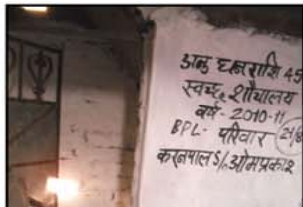 अनु धनराशि 45
स्वच्छ शौचालय
वर्ष- 2010-11
BPL- परिवार
करनपाल S/ ओमप्रकाश